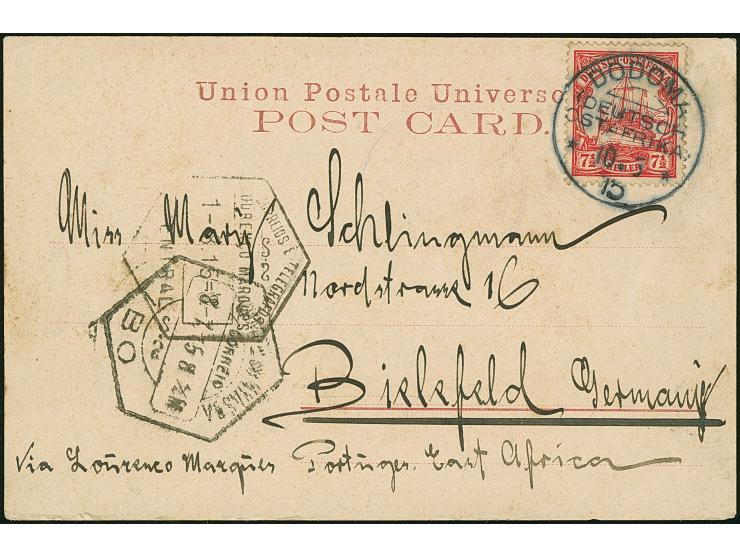 Union Postale Universe
POST CARD.
DEUTSCH-OSTAFRIKA
7½ HELLER 7½
DODOMA
DEUTSCH
OSTAFRIKA
* 10.3 *
15
Miss Mary Schlingmann
Nordstrasse 16
Bielefeld Germany
Via Lourenco Marques Portuges. East Africa
CORREIOS E TELEGRAPHOS
LOURENÇO MARQUES
CENTRAL
CORREIO
BO